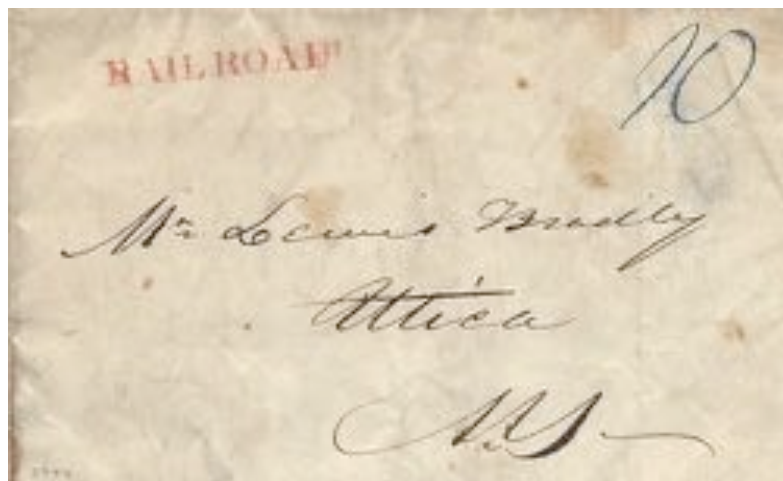 RAILROAD
10
Mr Lewis Bradly
Attica
N.Y.